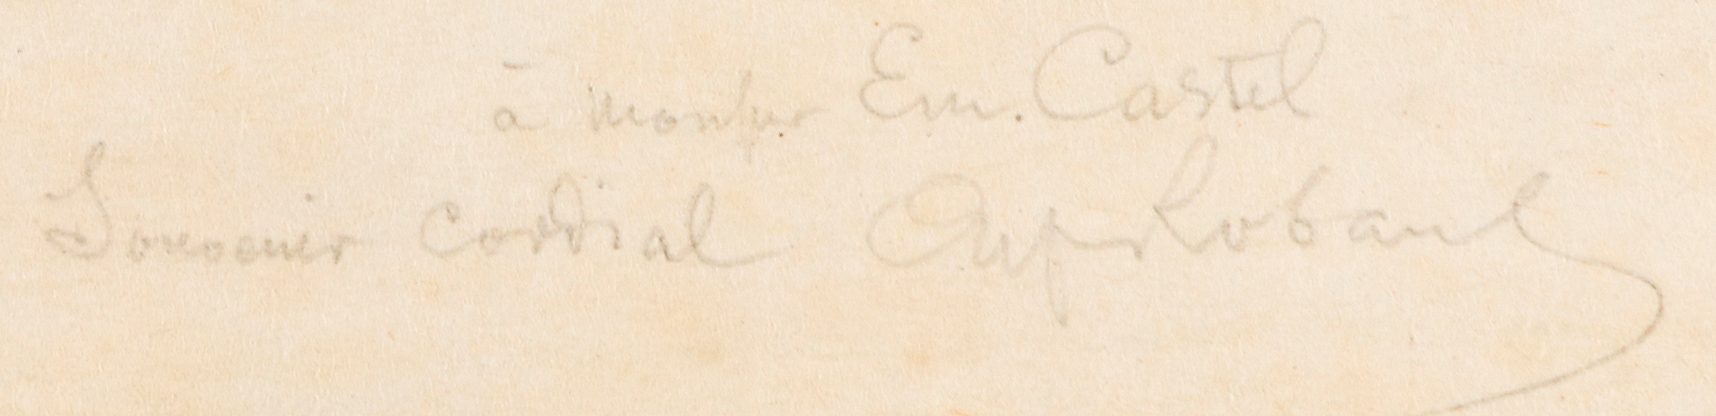 à Monsieur Em. Castel
Souvenir cordial Alf Robaut